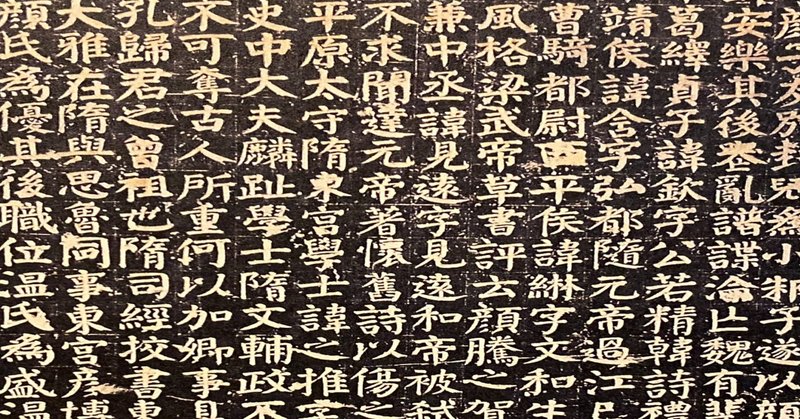 友別封郳為小邾子遂以顏
安樂其後喪亂譜諜淪亡魏有斐
葛繹貞子諱欽字公若精韓詩禮
靖侯諱含字弘都隨元帝過江已
曹騎都尉西平侯諱綝字文和生
風格梁武帝草書評云顏騰之賀
兼中丞諱見遠字見遠和帝被弑
不求聞達元帝著懷舊詩以傷之
平原太守隋東宮學士諱之推字
史中大夫麟趾學士隋文輔政不
不可奪古人所重何以加卿事見
孔歸君之曾祖也隋司經挍書東
大雅在隋與思魯同事東宮彥博
顏氏為優其後職位温氏為盛温